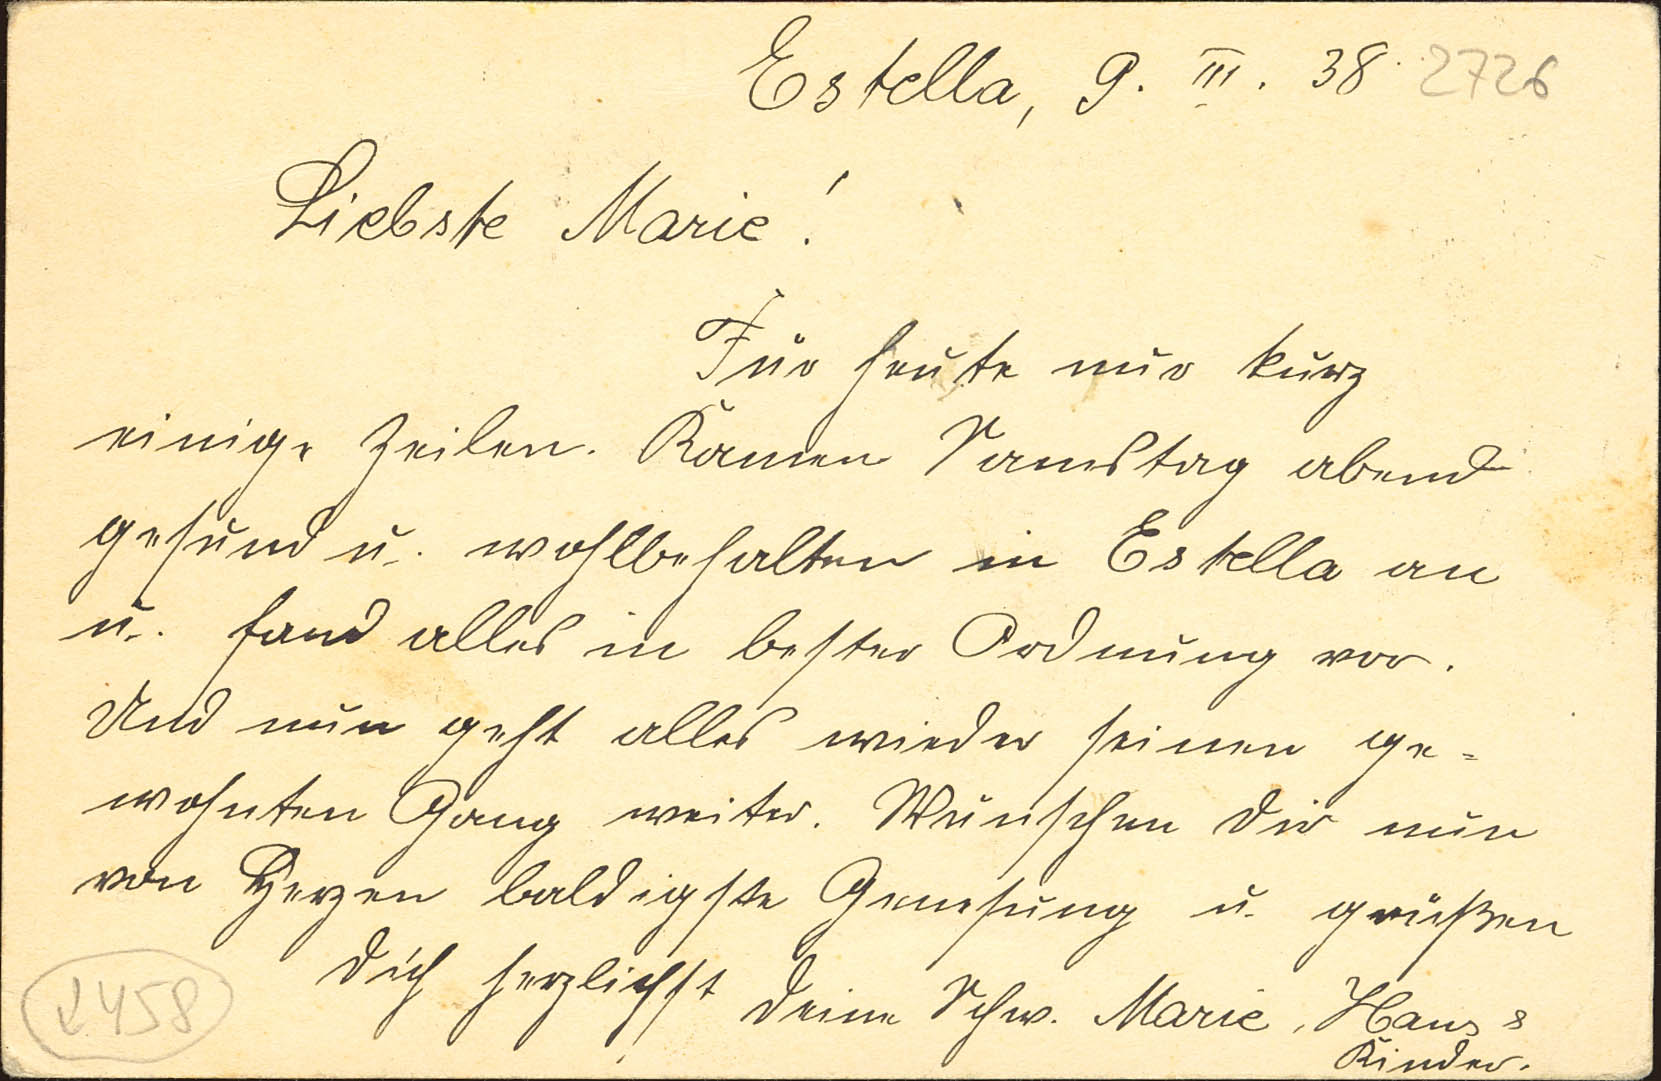 Estella, 9. III. 38. 2726
Liebste Marie!
Für heute nur kurz
einige Zeilen. Kamen Samstag abend
gesund u. wohlbehalten in Estella an
u. fand alles in bester Ordnung vor.
Und nun geht alles wieder seinen ge=
wohnten Gang weiter. Wünschen Dir nun
von Herzen baldigste Genesung u. grüßen
Dich herzlichst Deine Schw. Marie, Hans &
Kinder.
458